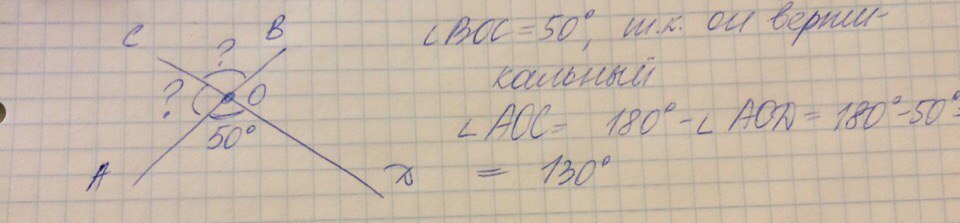 C B
? ?
O
50°
A D
∠BOC = 50°, т.к. он верти-
кальный
∠AOC = 180° - ∠AOD = 180° - 50° =
= 130°